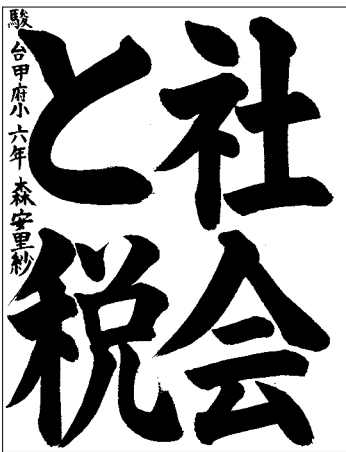 社会
と税
駿台甲府小 六年 森安里紗